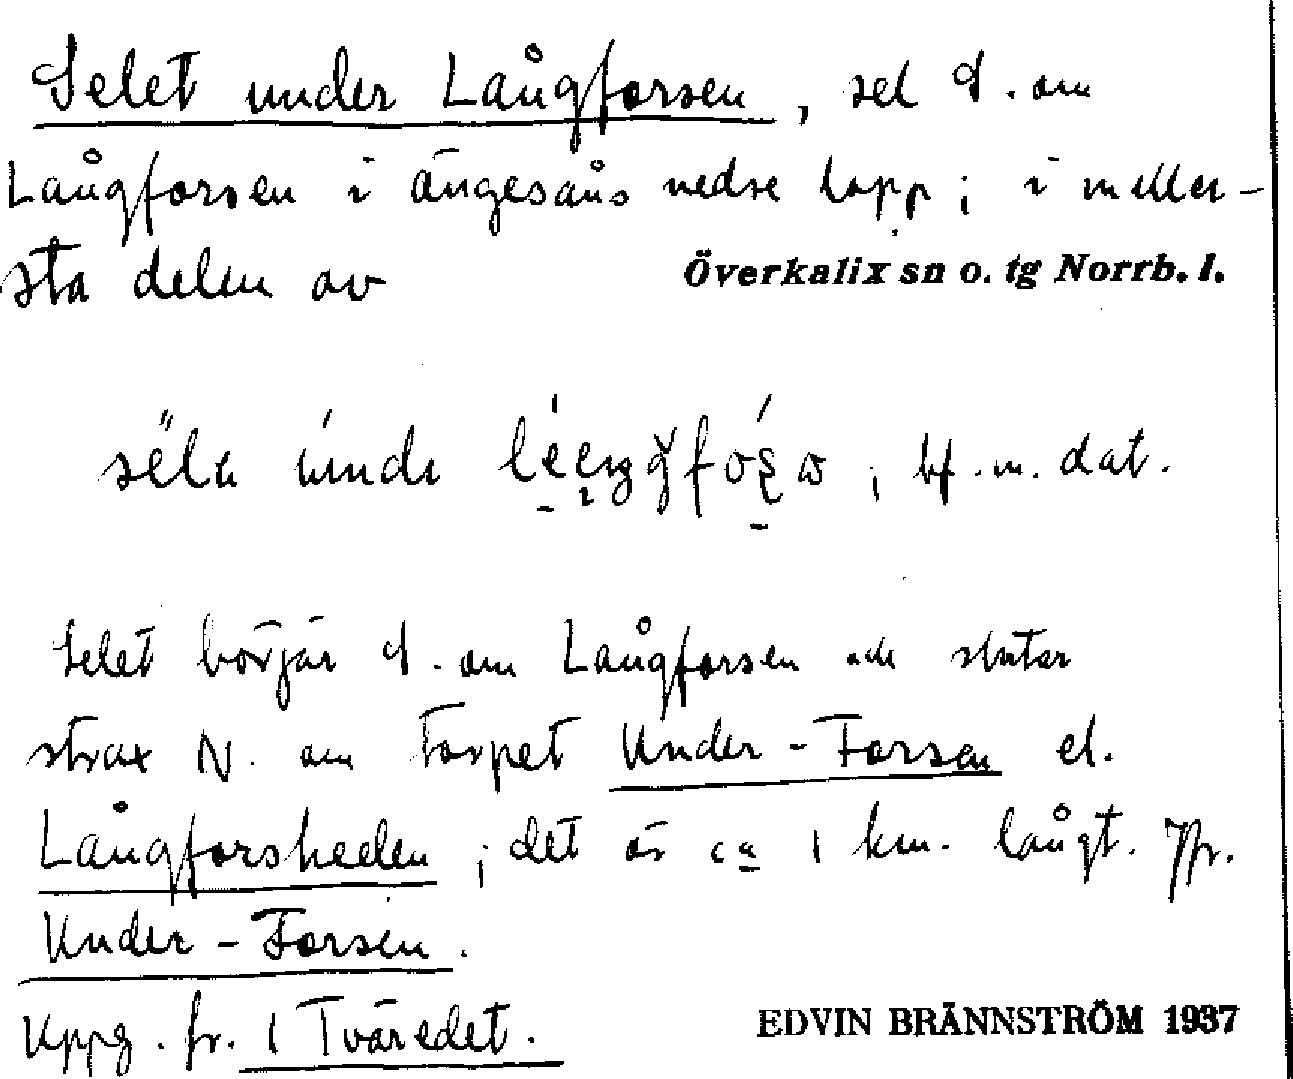 Selet under Långforsen, sel S. om
Långforsen i Ängesåns nedre lopp; i meller-
sta delen av
Överkalix sn o. tg Norrb. l.
bf. m. dat.
Selet börjar S. om Långforsen och slutar
strax N. om torpet Under-Forsen el.
Långforsheden; det är ca 1 km. långt. Jfr.
Under-Forsen.
Uppg. fr. 1 Tväredet.
EDVIN BRÄNNSTRÖM 1937